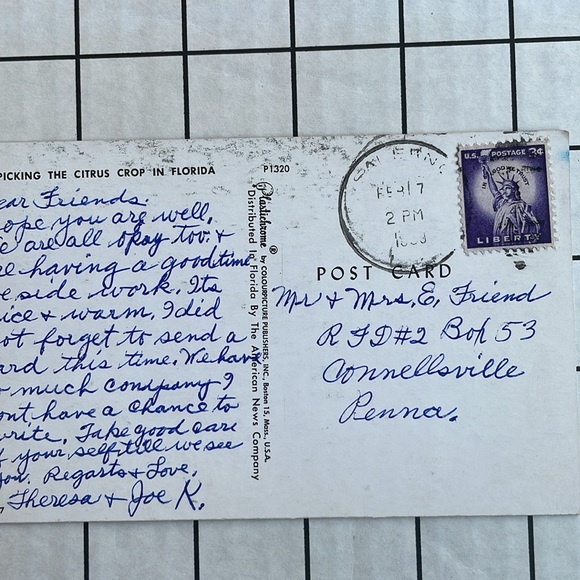 PICKING THE CITRUS CROP IN FLORIDA
P1320
ear Friends.
ope you are well,
e are all opay too. &
re having a good time
e side work. Its
ice & warm. I did
ot forget to send a
ard this time. We have
o much company I
ont have a chance to
write. Take good care
f your self till we see
you. Regarts & Love,
Theresa & Joe K.
Plastichrome ® by COLOURPICTURE PUBLISHERS, INC., Boston 15, Mass. U.S.A.
Distributed In Florida By The American News Company
FEB 17
2 PM
U.S. POSTAGE 3¢
IN GOD WE TRUST
LIBERTY
POST CARD
Mr & Mrs. E. Friend
RFD#2 Box 53
Connellsville
Penna.